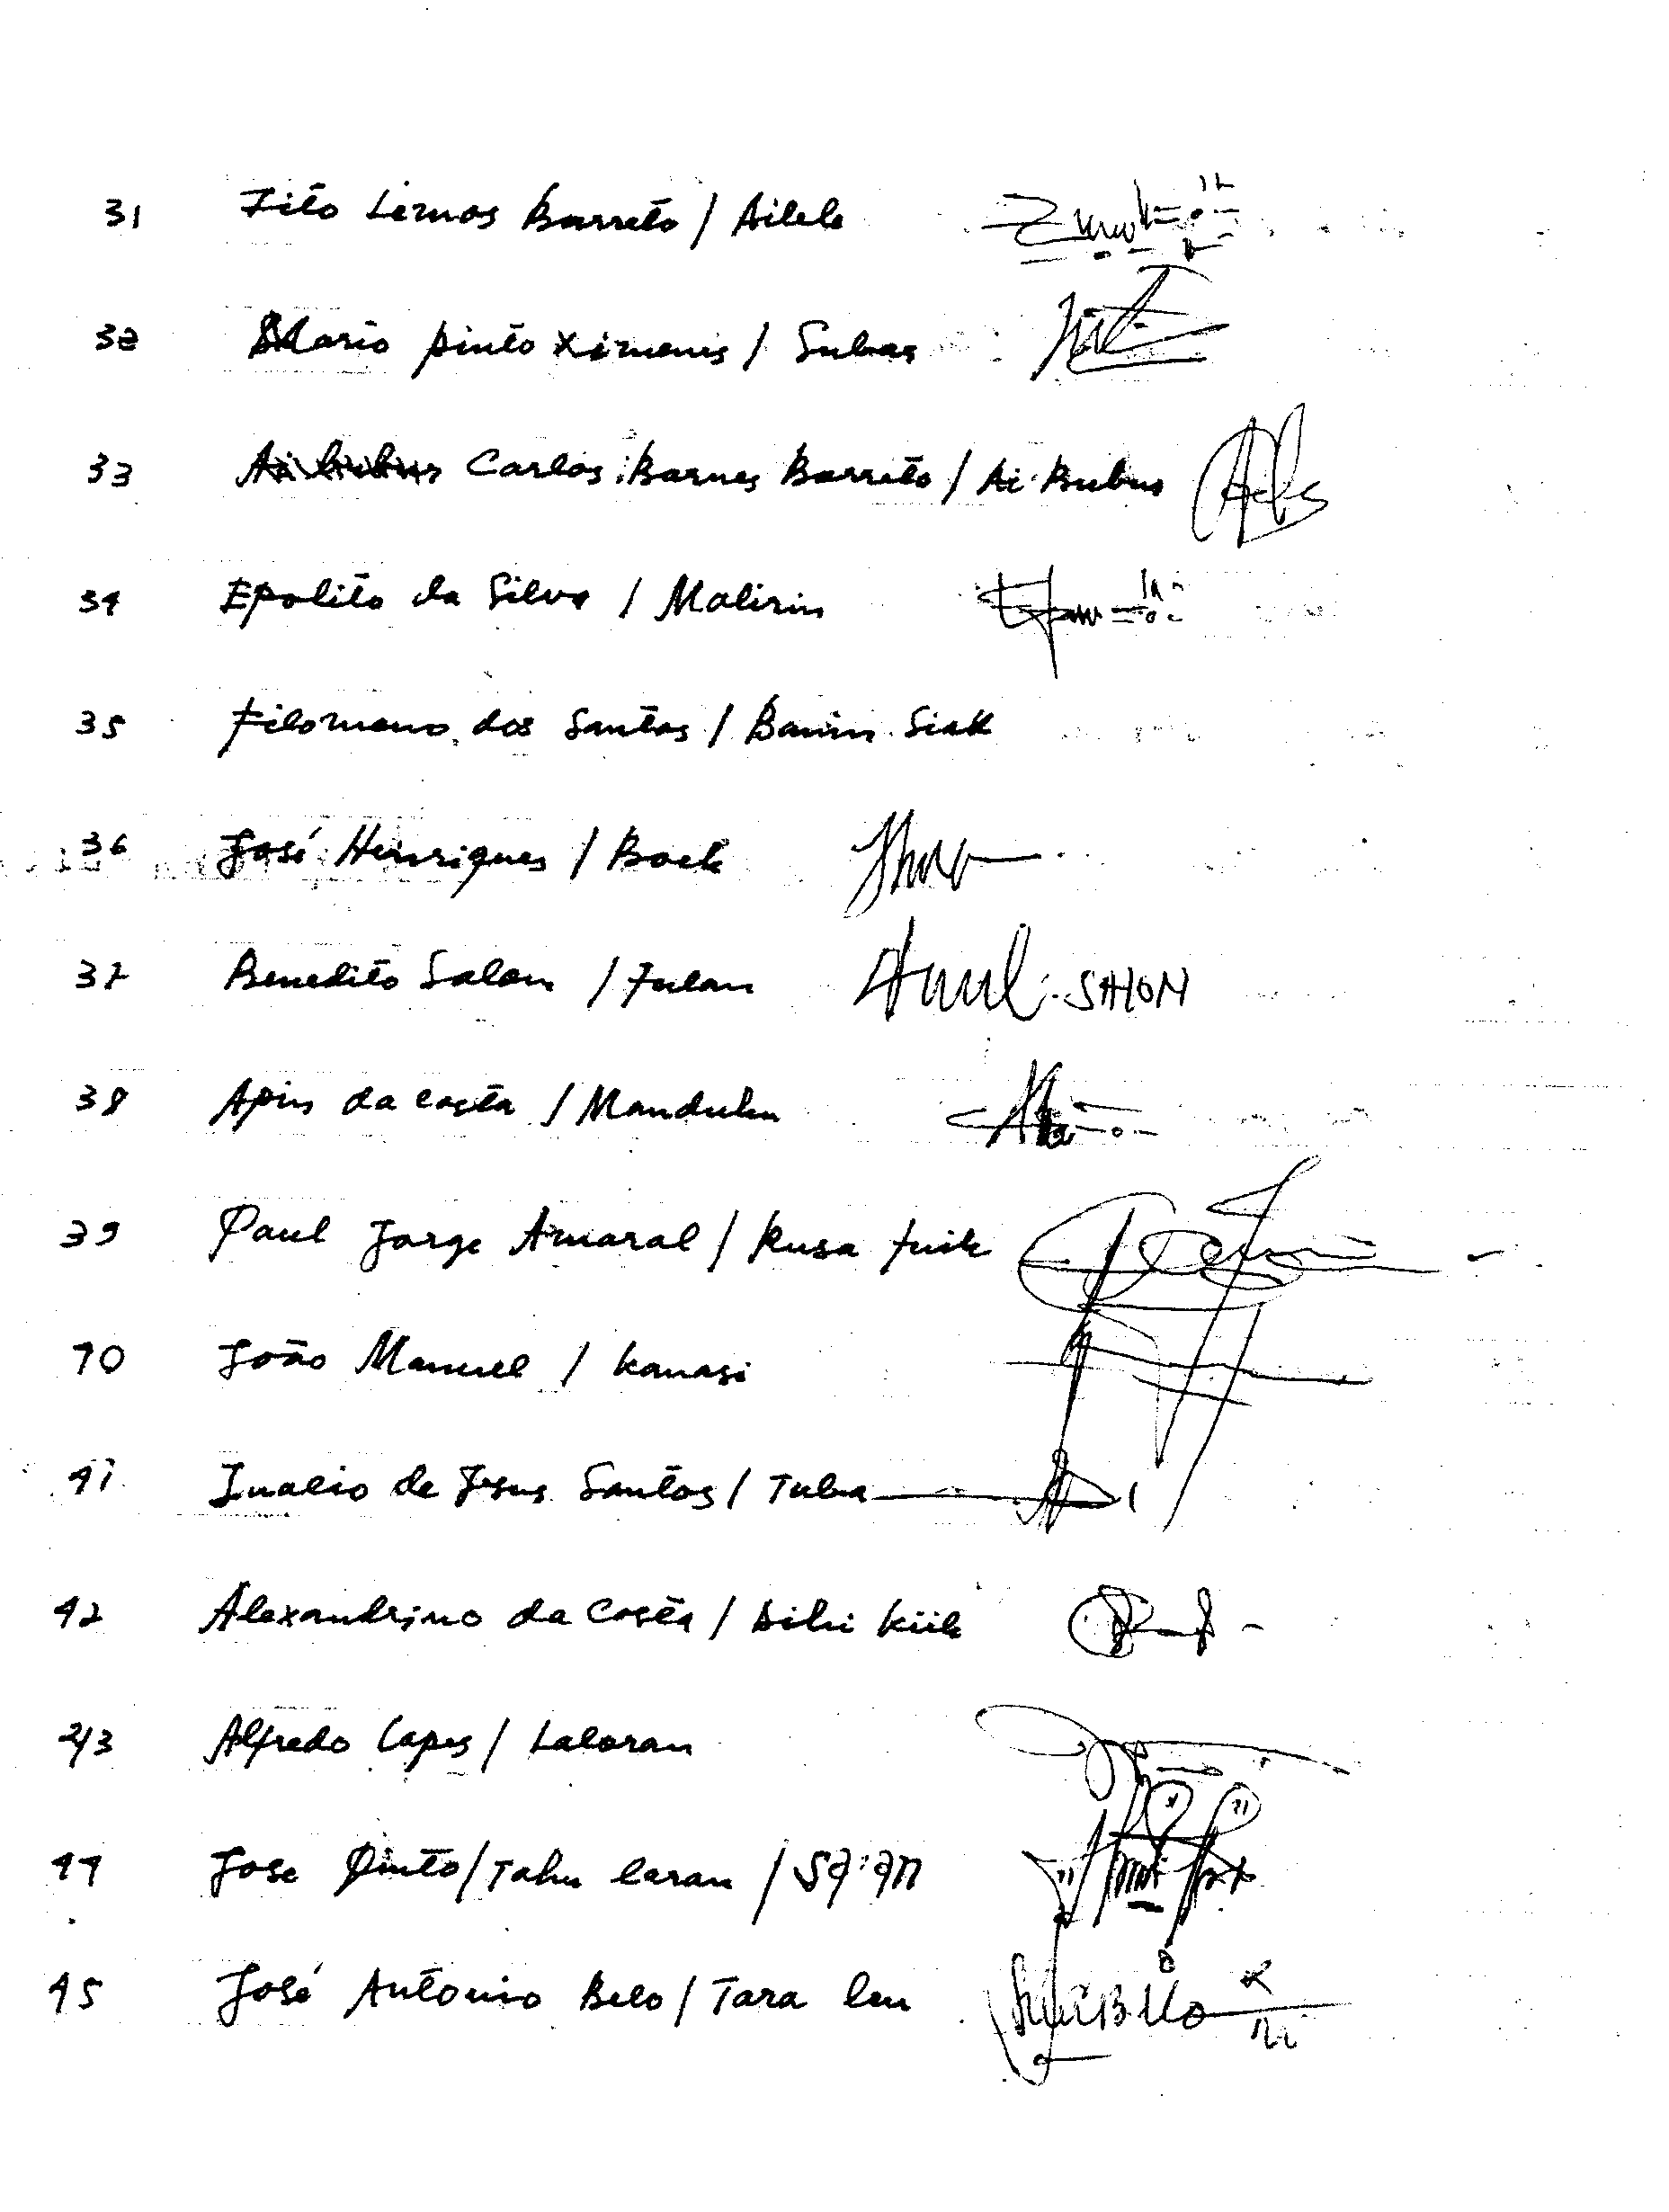 31 Tito Lemos Barreto / Ailele
32 Mario Pinto Ximenes / Subas
33 Carlos Barnes Barreto / Ai Bubus
34 Epolito da Silva / Malirin
35 Filomeno dos Santos / Banin Siak
36 José Henriques / Boek
37 Benedito Salan / Fulan SAHON
38 Apin da Costa / Manduku
39 Paul Jorge Amaral / Rusa fuik
40 João Manuel / Kanasi
41 Inacio de Jesus Santos / Tuba
42 Alexandrino da Costa / Dihi Kiik
43 Alfredo Lapes / Laloran
44 Jose Pinto / Tahu laran /
45 José António Belo / Tara leu